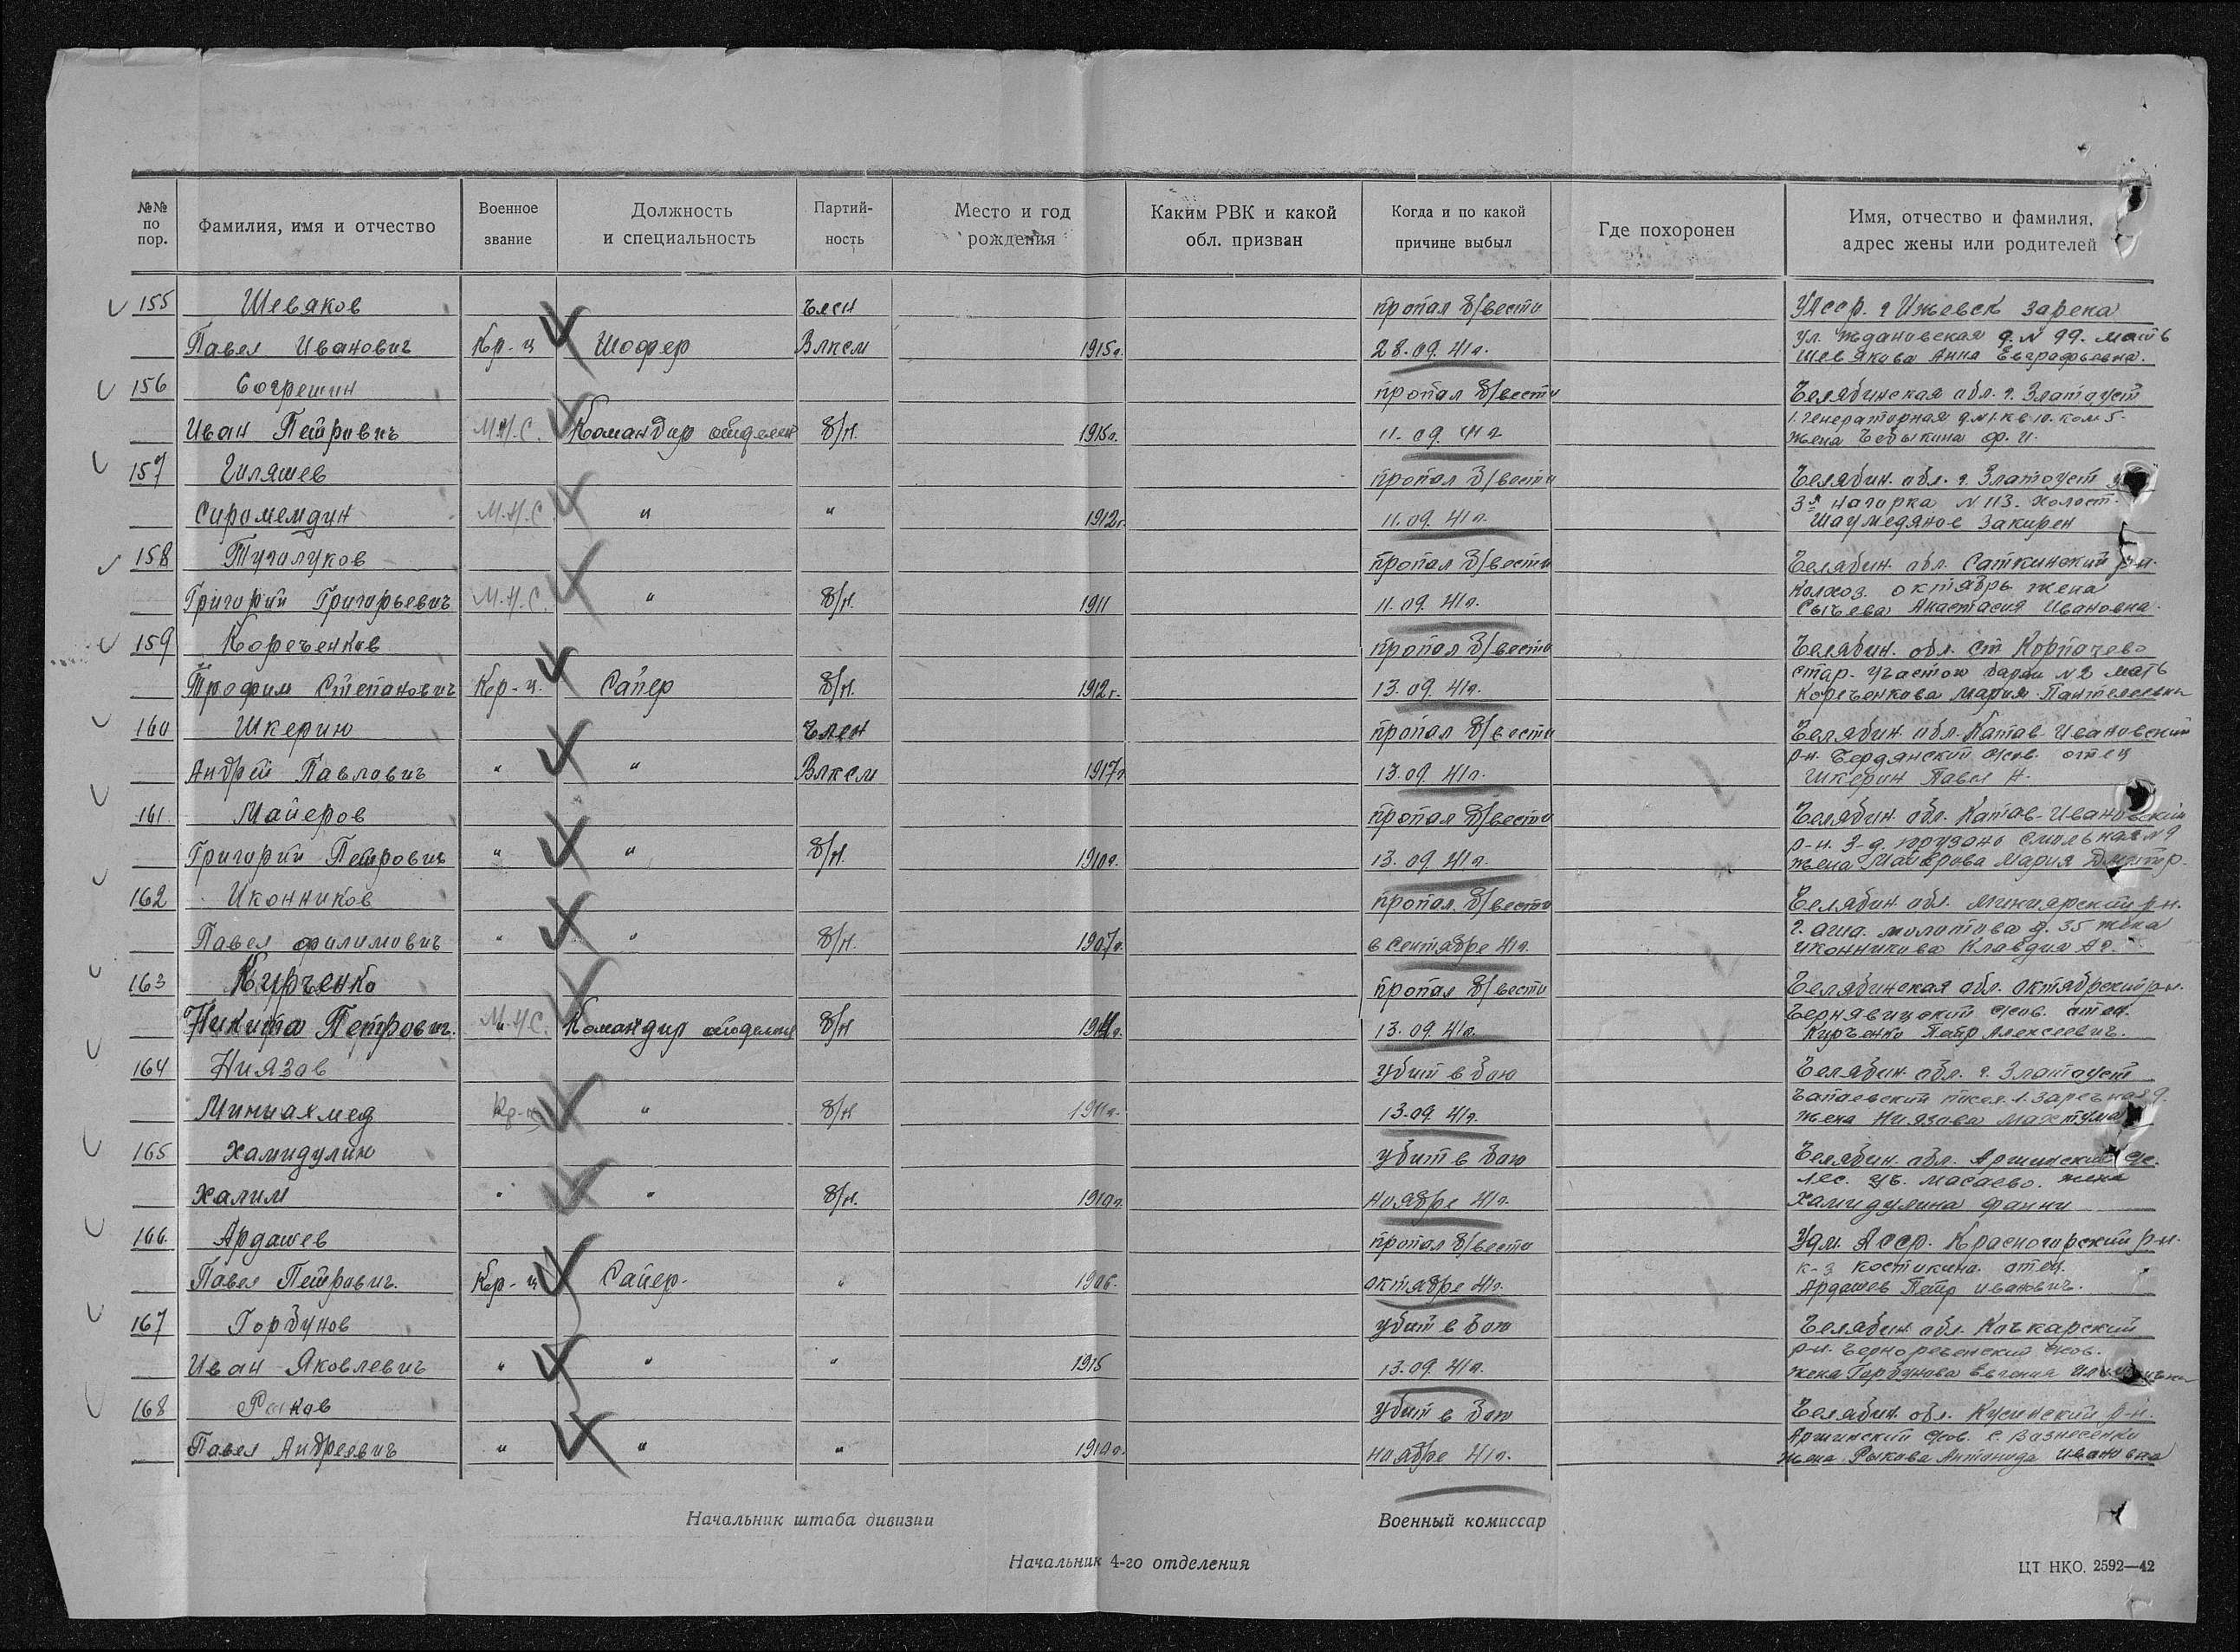 №№ по пор. Фамилия, имя и отчество Военное звание Должность и специальность Партий-ность Место и год рождения Каким РВК и какой обл. призван Когда и по какой причине выбыл Где похоронен Имя, отчество и фамилия, адрес жены или родителей
155 Шевяков член пропал б/вести УАССР. г Ижевск зарека
Павел Иванович Кр-ц Шофер Влксм 1915г. 28.09.41г. ул. Ждановская д. N 99. мать
Шевякова Анна Евграфьевна.
156 Согрешин пропал б/вести Челябинская обл. г. Златоуст
Иван Петрович М.Н.С. Командир отделен б/п. 1915г. 11.09.41г
жена Чебыкина Ф. И.
157 Гиляшев пропал б/вести Челябин. обл. г. Златоуст
М.Н.С. " " 1912г. 11.09.41г. 3я нагорка N 113. холост.
Закирен
158 Тугалуков пропал б/вести Челябин. обл. Саткинский р-н.
Григорий Григорьевич М.Н.С. " б/п. 1911 11.09.41г. Колхоз. октябрь жена
Сычева Анастасия Ивановна.
159 Кореченков пропал б/вести Челябин. обл. ст
Трофим Степанович Кр-ц. Сапер б/п. 1912г. 13.09.41г. N2 мать
Кореченкова Мария
160 Шкерин член пропал б/вести Челябин. обл. Катав-Ивановский
Андрей Павлович " " Влксм 1917г 13.09.41г. р-н. отец
Шкерин Павел
161. Майеров пропал б/вести Челябин. обл. Катав-Ивановский
Григорий Петрович " " б/п. 1910г. 13.09.41г. р-н. з-д.
жена Майерова Мария
162 Иконников пропал б/вести Челябин. обл. Миньярский р-н.
Павел Филимович " " б/п. 1907г. в сентябре 41г. г. Аша. Молотова д. 35 жена
Иконникова Клавдия
163 Курченко пропал б/вести Челябинская обл. Октябрский р-н.
Никита Петрович. М.Н.С. Командир отделения б/п 13.09.41г. отец.
Курченко Петр Алексеевич.
164 Ниязов убит в бою Челябин. обл. г. Златоуст
Миниахмед Кр-ц " б/п 1911г. 13.09.41г. Чапаевский посел.
жена Ниязова
165 Хамидулин убит в бою Челябин. обл.
Халим " " б/п. 1910г. ноябре 41г. Масаево. жена
Хамидулина
166. Ардашев пропал б/вести Удм. АССР. Красногорский р-н.
Павел Петрович. Кр-ц Сапер. " 1906. октябре 41г. отец.
Ардашев Петр Иванович.
167 Горбунов убит в бою Челябин обл. Кочкарский
Иван Яковлевич " " " 1915 13.09.41г. р-н. Чернореченский
жена Горбунова Евгения
168 Рыков убит в бою Челябин. обл. Кусинский р-н.
Павел Андреевич " " " 1910г. ноябре 41г. Аршинский
жена Рыкова Антонида Ивановна
Начальник штаба дивизии Военный комиссар
Начальник 4-го отделения
ЦТ НКО. 2592—42